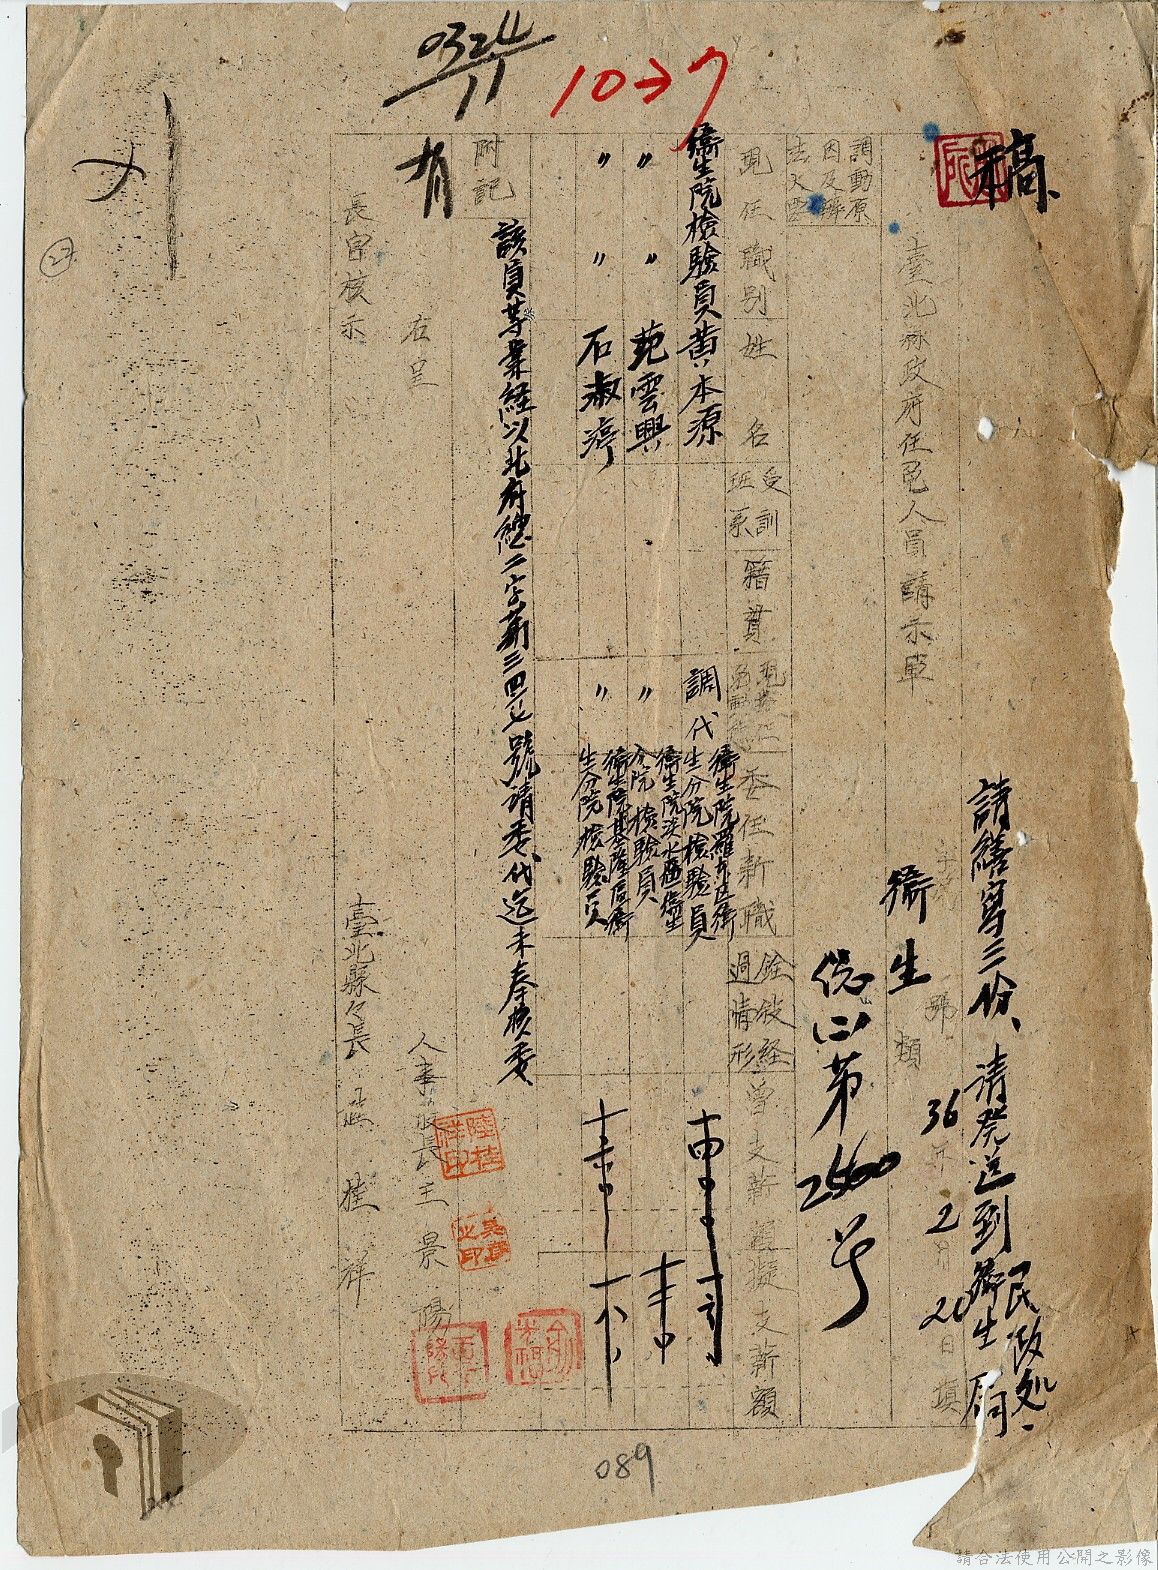 0324
11
10→7
稿
請繕寫三份、請發送到民政処、衛生局
臺北縣政府任免人員請示單
字第 號
36年2月20日填
衛生類
総(二)第2560号
調動原因及辦法
現任職別
姓名
受訓班系
籍貫
委任新職
銓敘經過情形
曾支薪額
擬支薪額
衛生院檢驗員 黃本源 調代 衛生院羅東区衛生分院檢驗員
〃 〃 范雲興 〃 衛生院淡水區衛生分院檢驗員
〃 〃 石淑渟 〃 衛生院基隆區衛生分院檢驗員
附記
該員等業経以北府總二字第三四七號請委代迄未奉核委
有
右呈
長官核示
人事股長王景陽
臺北縣々長陸桂祥
陸桂祥印
27
089
請合法使用公開之影像